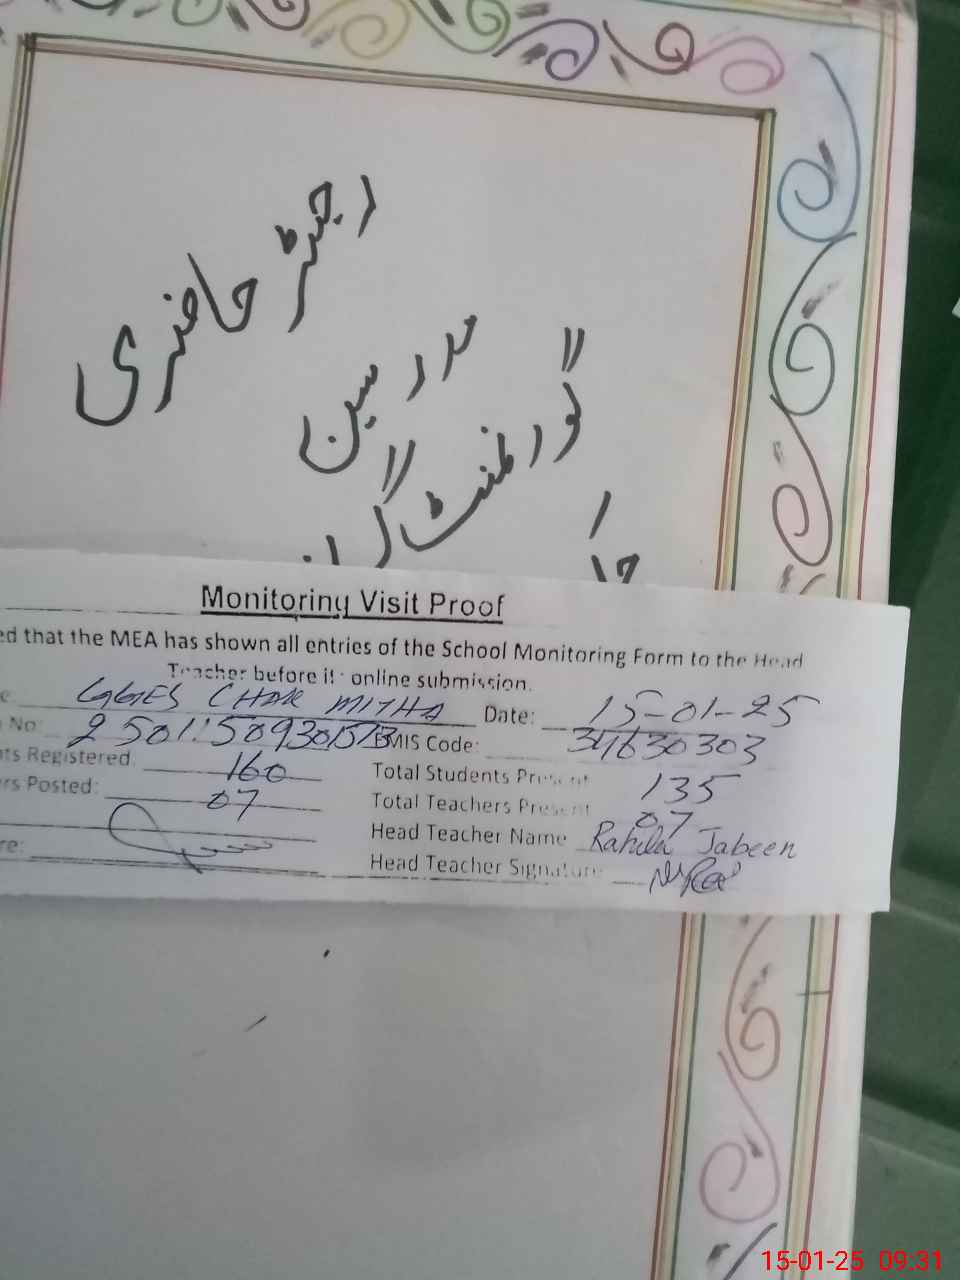 رجسٹر حاضری
مدرسین
گورنمنٹ گر
Monitoring Visit Proof
ed that the MEA has shown all entries of the School Monitoring Form to the Head
Teacher before it: online submission.
e: GGES CHAK MITHA Date: 15-01-25
No: EMIS Code: 34630303
ts Registered: 160 Total Students Present 135
rs Posted: 07 Total Teachers Present 07
Head Teacher Name Rahila Jabeen
re: Head Teacher Signature
15-01-25 09:31